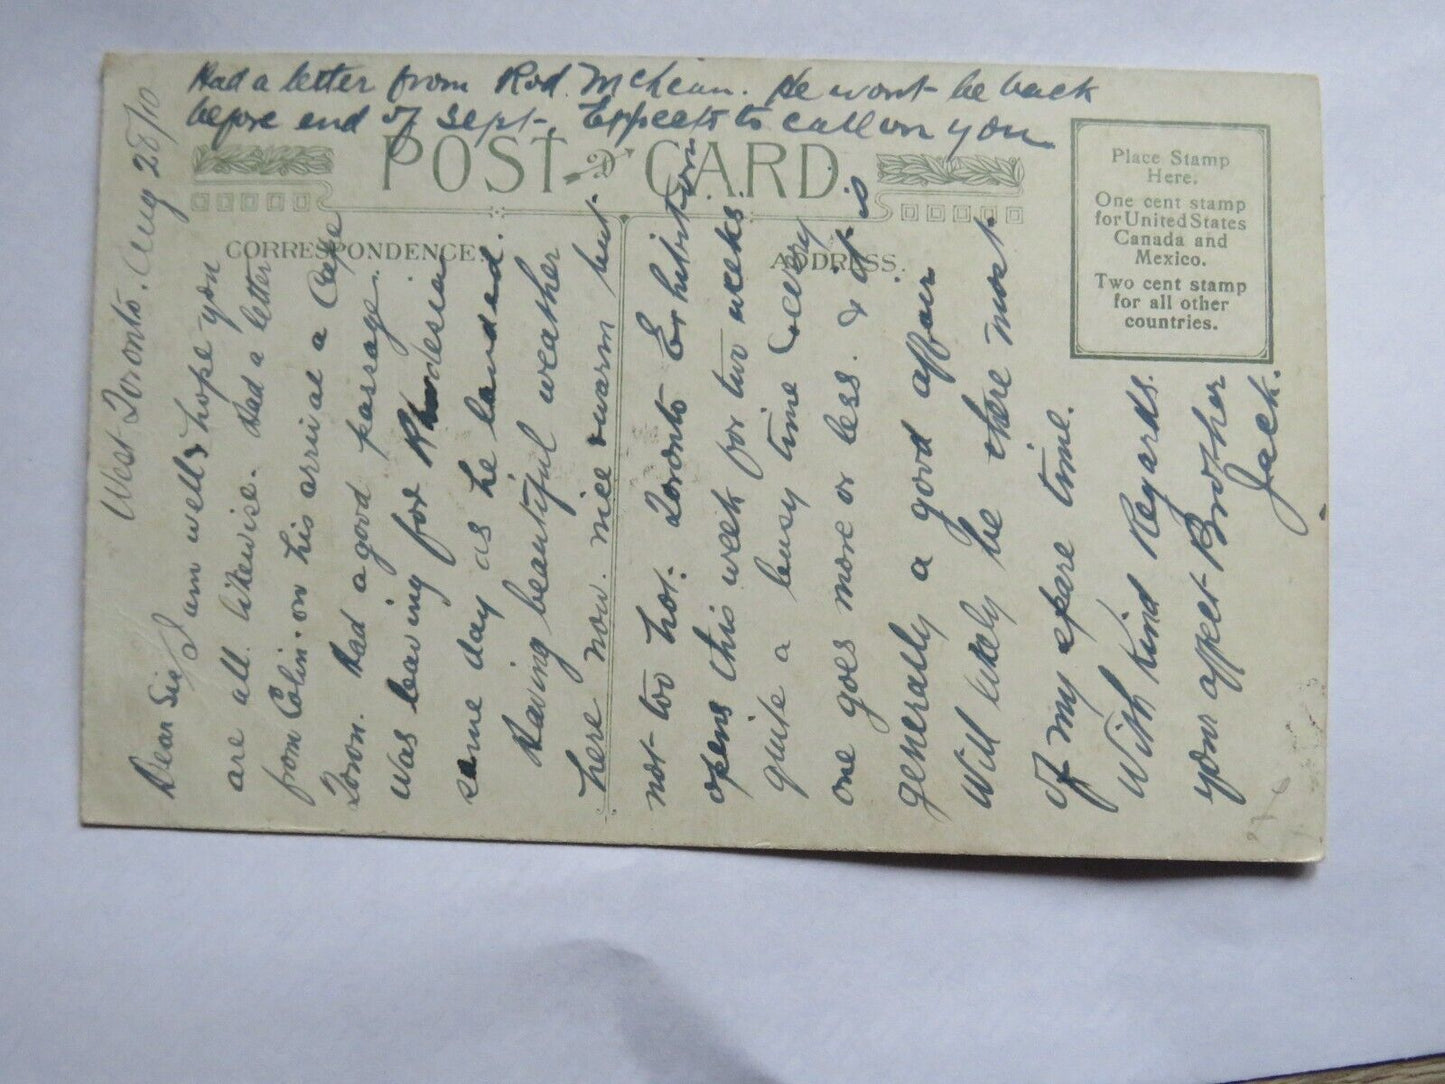 Had a letter from Rod. McLean. He wont be back
before end of Sept. Expects to call on you
POST CARD
CORRESPONDENCE.
ADDRESS.
Place Stamp
Here.
One cent stamp
for United States
Canada and
Mexico.
Two cent stamp
for all other
countries.
West Toronto. Aug 28/10
Dear Sis,
I am well & hope you
are all likewise. Had a letter
from Colin. on his arrival a Cape
Town. Had a good passage.
Was leaving for Rhodesia
same day as he landed.
Having beautiful weather
here now. nice & warm but
not too hot. Toronto Exhibition
opens this week for two weeks.
quite a busy time & every
one goes more or less. & it is
generally a good affair
Will likely be there most
of my spare time.
With Kind Regards.
your affect Brother
Jack.